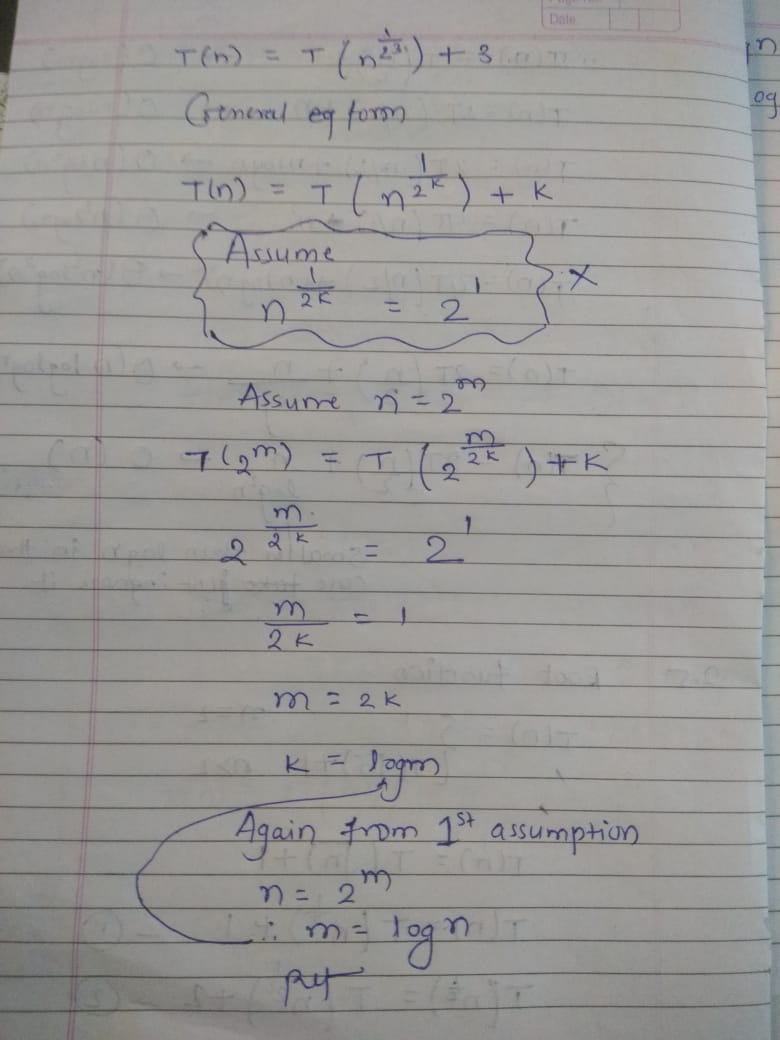 Date
T(n) = T(n^(1/2^3)) + 3
n
General eq form
og
T(n) = T(n^(1/2^k)) + K
Assume
n^(1/2K) = 2^1 ×
Assume n = 2^m
T(2^m) = T(2^(m/2^K)) + K
2^(m/2^K) = 2^1
m/2K = 1
m = 2K
K = logm
Again from 1st assumption
n = 2^m
∴ m = log n